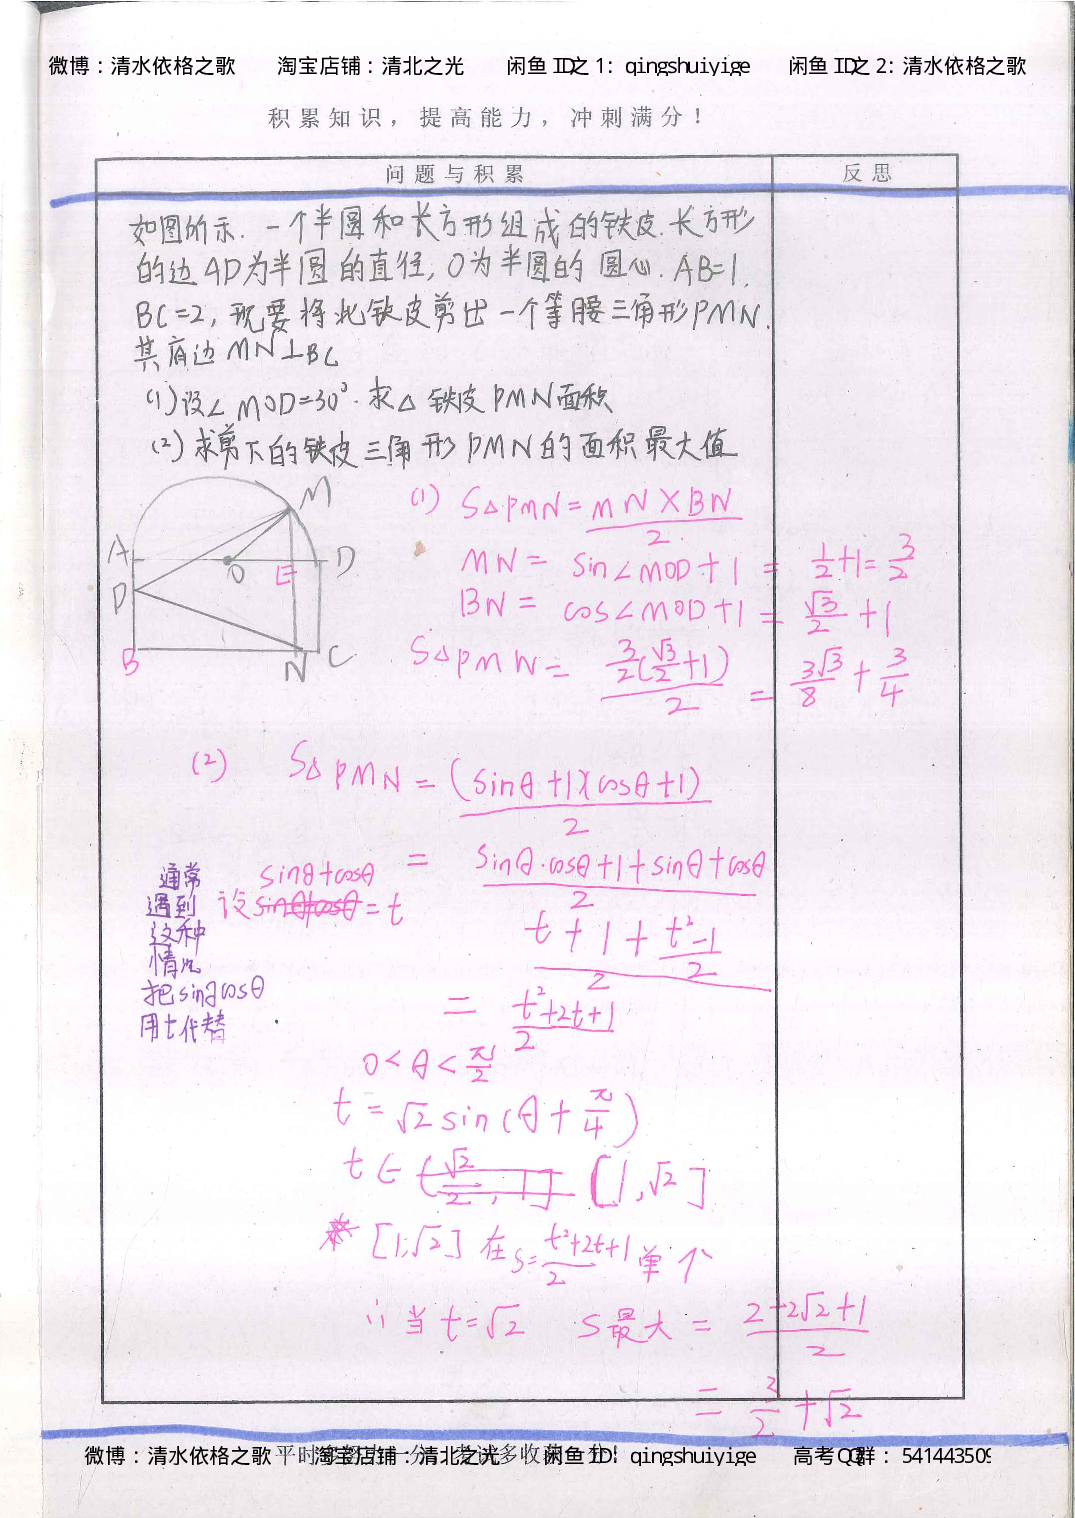 微博：清水依格之歌 淘宝店铺：清北之光 闲鱼 ID之 1: qingshuiyige 闲鱼 ID之 2: 清水依格之歌
积累知识，提高能力，冲刺满分！
问题与积累 反思
如图所示.一个半圆和长方形组成的铁皮.长方形
的边AD为半圆的直径,O为半圆的圆心.AB=1,
BC=2,现要将此铁皮剪出一个等腰三角形PMN.
其底边MN⊥BC
(1)设∠MOD=30°.求△铁皮PMN面积
(2)求剪下的铁皮三角形PMN的面积最大值
M
A
O
E
D
P
B
N
C
(1) S△PMN=MN×BN/2
MN= sin∠MOD+1 = 1/2+1=3/2
BN= cos∠MOD+1 = √3/2+1
S△PMN= 3/2(√3/2+1)/2 = 3√3/8+3/4
(2) S△PMN=(sinθ+1)(cosθ+1)/2
= sinθ·cosθ+1+sinθ+cosθ/2
sinθ+cosθ
设sinθ+cosθ=t
t+1+t²-1/2/2
= t²+2t+1/2
通常
遇到
这种
情况
把sinθcosθ
用t代替
0<θ<π/2
t=√2sin(θ+π/4)
t∈(√2/2,1] [1,√2]
[1,√2]在S=t²+2t+1/2单个
∴当t=√2 S最大=2+2√2+1/2
=3/2+√2
微博：清水依格之歌 淘宝店铺：清北之光 闲鱼 ID: qingshuiyige 高考QQ群：541443509